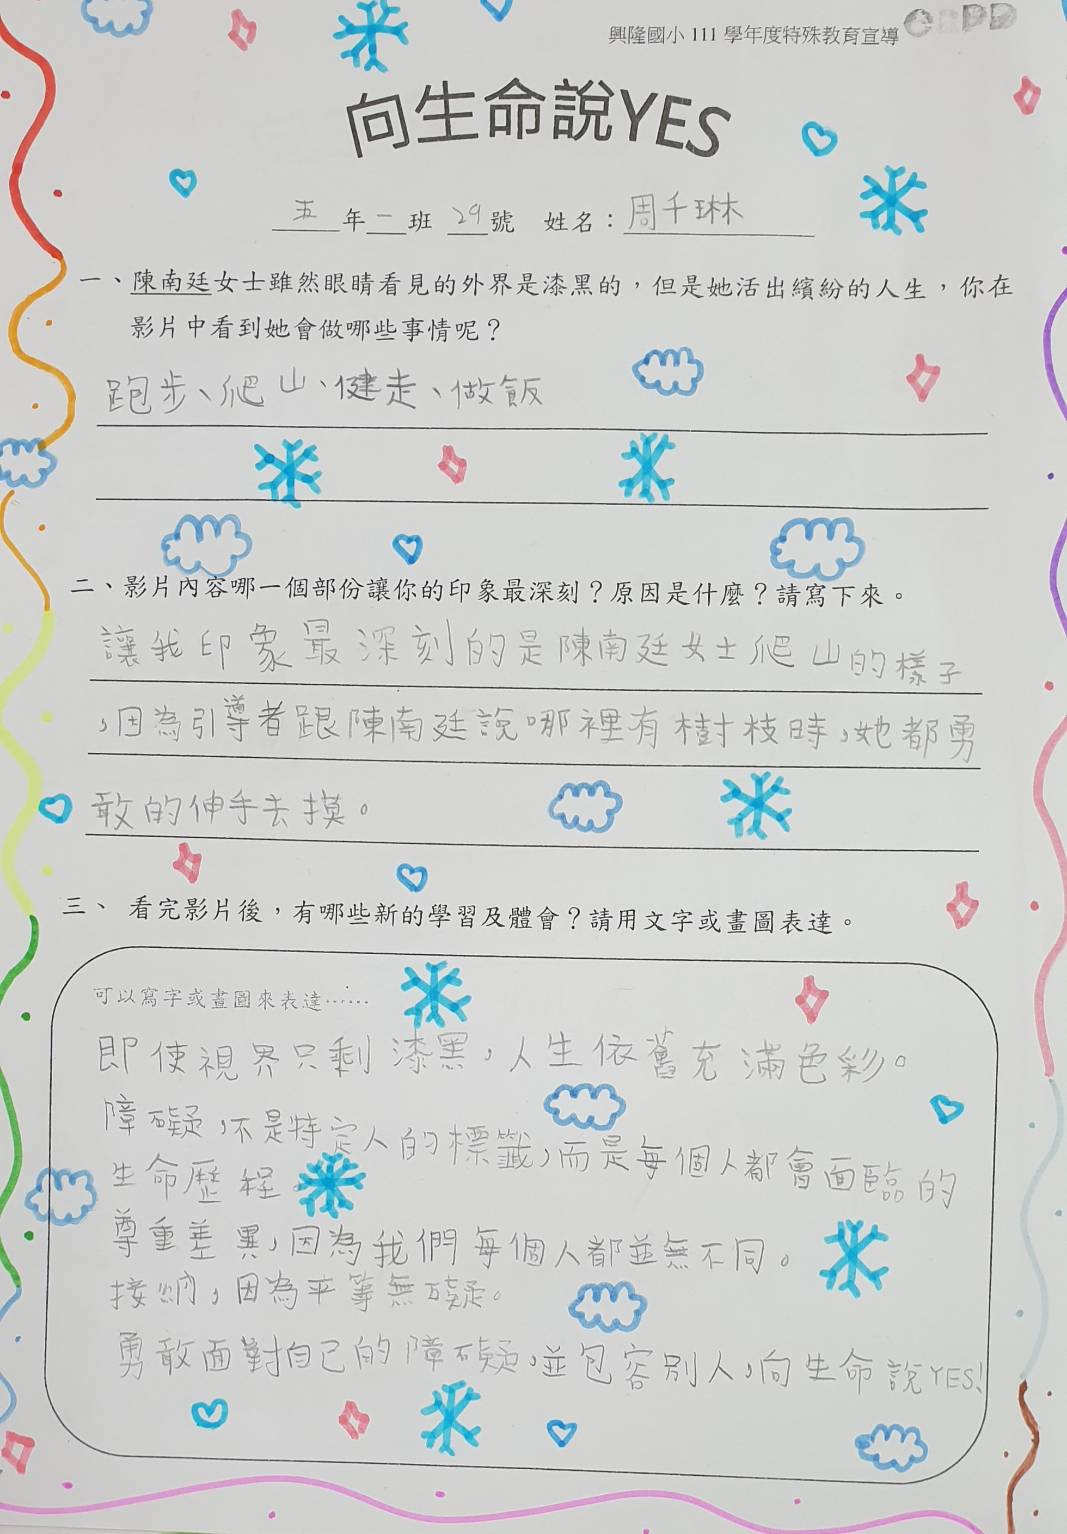 興隆國小 111 學年度特殊教育宣導
向生命說YES
五年一班 29號 姓名：周千琳
一、陳南廷女士雖然眼睛看見的外界是漆黑的，但是她活出繽紛的人生，你在
影片中看到她會做哪些事情呢？
跑步、爬山、健走、做飯
二、影片內容哪一個部份讓你的印象最深刻？原因是什麼？請寫下來。
讓我印象最深刻的是陳南廷女士爬山的樣子
，因為引導者跟陳南廷說哪裡有樹枝時，她都勇
敢的伸手去摸。
三、 看完影片後，有哪些新的學習及體會？請用文字或畫圖表達。
可以寫字或畫圖來表達……
即使視界只剩漆黑，人生依舊充滿色彩。
障礙，不是特定人的標籤，而是每個人都會面臨的
生命歷程
尊重差異，因為我們每個人都並無不同。
接納，因為平等無礙。
勇敢面對自己的障礙，並包容別人，向生命說YES!